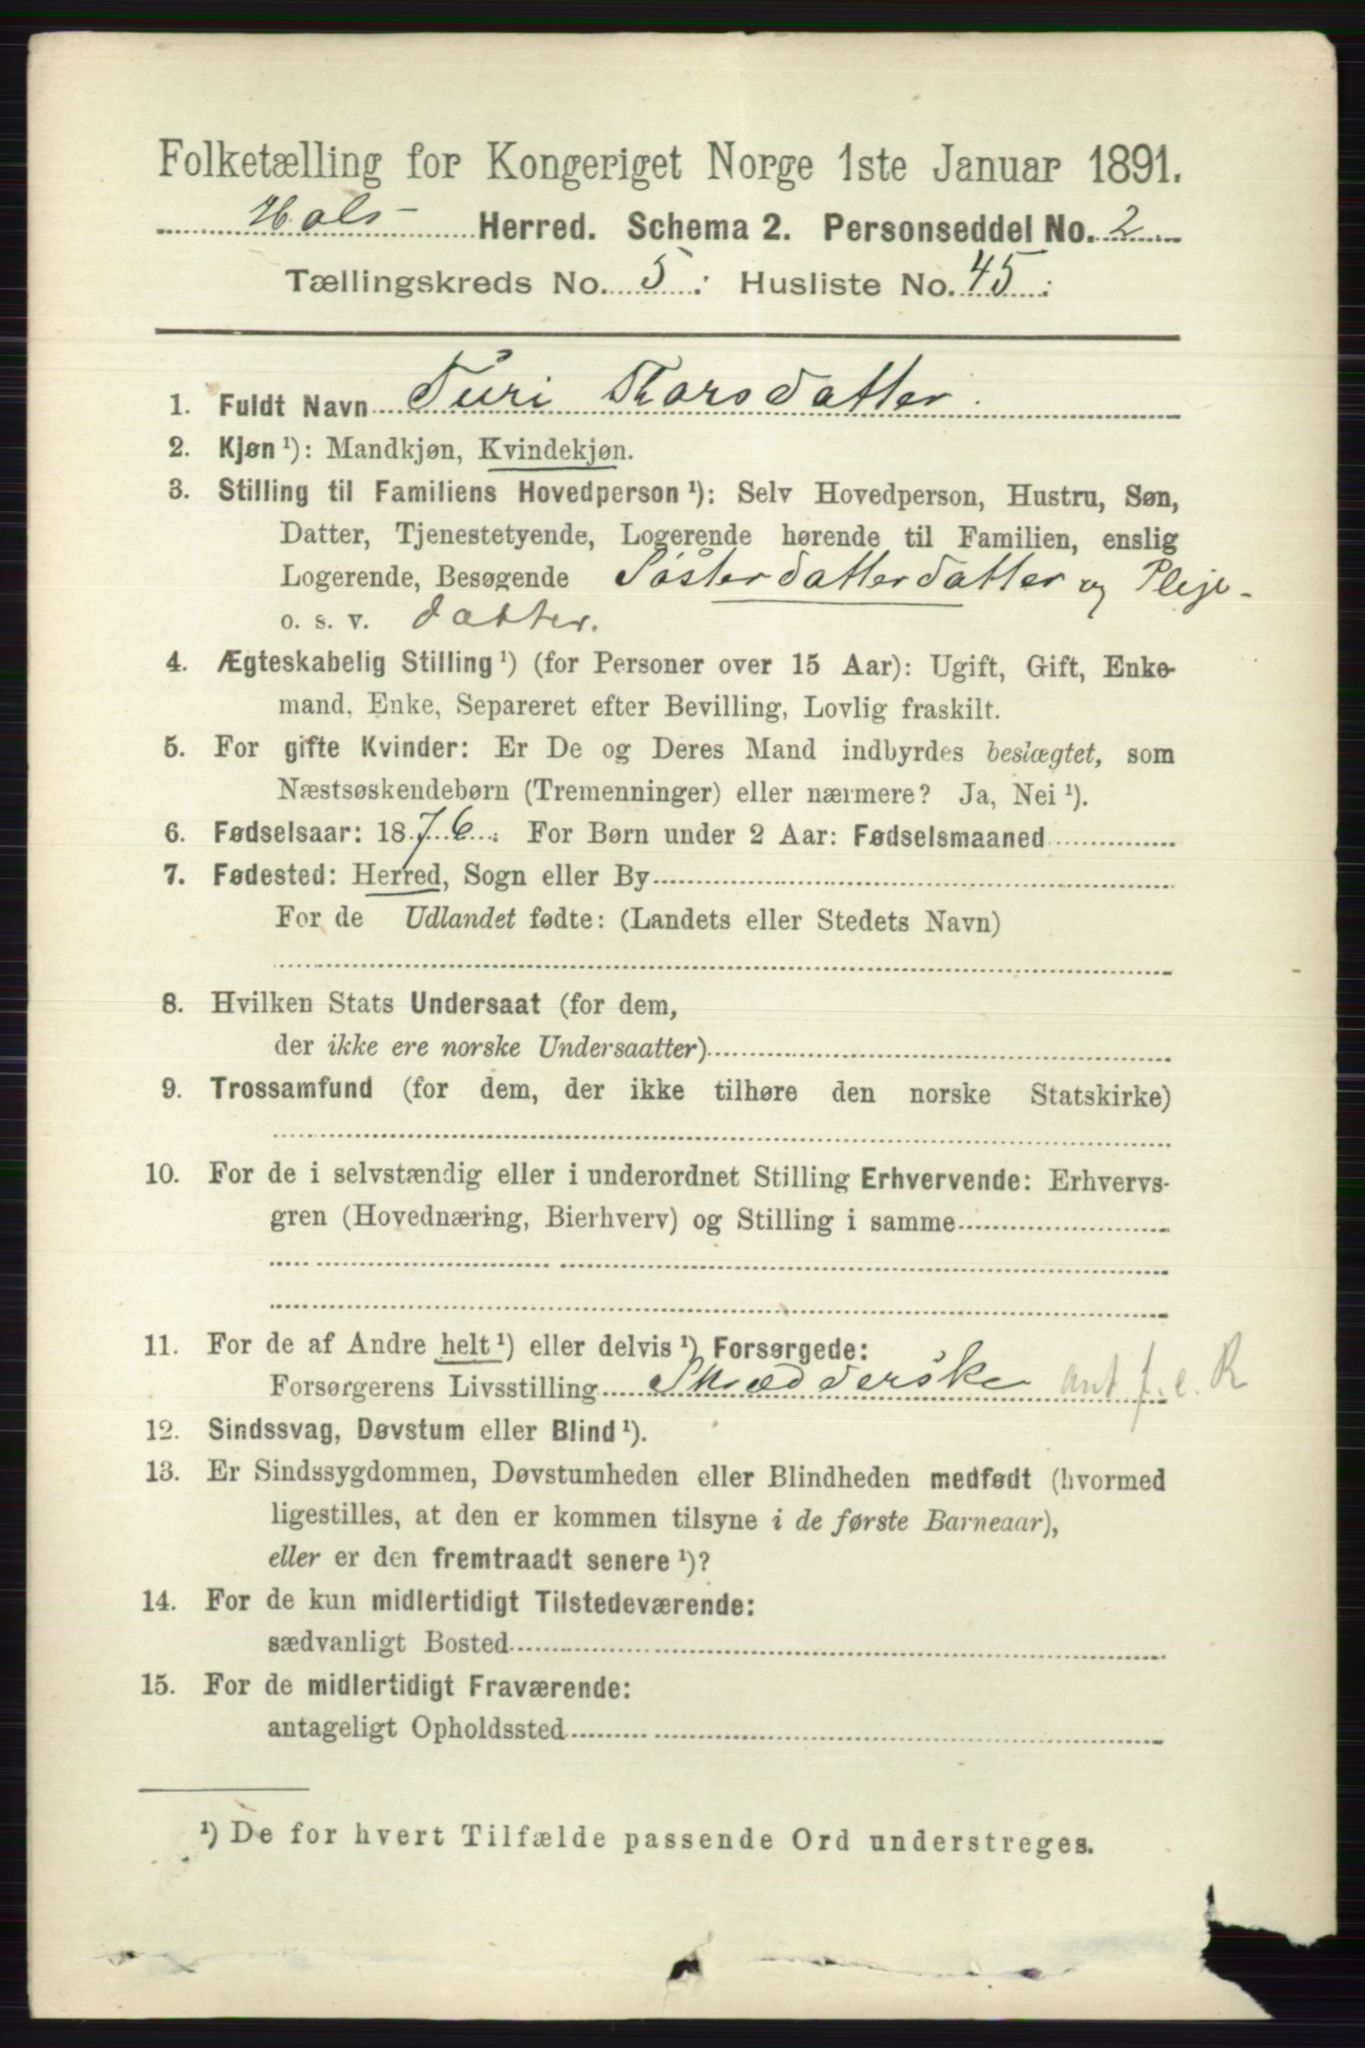 Folketælling for Kongeriget Norge 1ste Januar 1891.
Hols Herred. Schema 2. Personseddel No. 2
Tællingskreds No. 5. Husliste No. 45.
1. Fuldt Navn Turi Thorsdatter
2. Kjøn ¹): Mandkjøn, Kvindekjøn.
3. Stilling til Familiens Hovedperson ¹): Selv Hovedperson, Hustru, Søn,
Datter, Tjenestetyende, Logerende hørende til Familien, enslig
Logerende, Besøgende Søsterdatterdatter og Pleje-
o. s. v. datter.
4. Ægteskabelig Stilling ¹) (for Personer over 15 Aar): Ugift, Gift, Enke-
mand, Enke, Separeret efter Bevilling, Lovlig fraskilt.
5. For gifte Kvinder: Er De og Deres Mand indbyrdes beslægtet, som
Næstsøskendebørn (Tremenninger) eller nærmere? Ja, Nei ¹).
6. Fødselsaar: 1876. For Børn under 2 Aar: Fødselsmaaned
7. Fødested: Herred, Sogn eller By
For de Udlandet fødte: (Landets eller Stedets Navn)
8. Hvilken Stats Undersaat (for dem,
der ikke ere norske Undersaatter)
9. Trossamfund (for dem, der ikke tilhøre den norske Statskirke)
10. For de i selvstændig eller i underordnet Stilling Erhvervende: Erhvervs-
gren (Hovednæring, Bierhverv) og Stilling i samme
11. For de af Andre helt ¹) eller delvis ¹) Forsørgede:
Forsørgerens Livsstilling Skrædderske ant f. e. R
12. Sindssvag, Døvstum eller Blind ¹).
13. Er Sindssygdommen, Døvstumheden eller Blindheden medfødt (hvormed
ligestilles, at den er kommen tilsyne i de første Barneaar),
eller er den fremtraadt senere ¹)?
14. For de kun midlertidigt Tilstedeværende:
sædvanligt Bosted
15. For de midlertidigt Fraværende:
antageligt Opholdssted
¹) De for hvert Tilfælde passende Ord understreges.